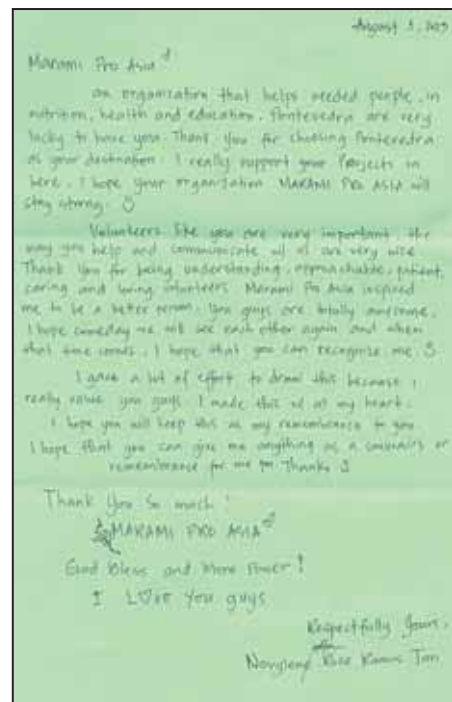 August 3,
Marami Pro Asia
an organization that helps needed people, in
nutrition, health and education. Pontevedra are very
lucky to have you. Thank you for choosing Pontevedra
as your destination. I really support your Projects in
here. I hope your organization MARAMI PRO ASIA will
stay strong.
Volunteers like you are very important, the
way you help and communicate w/ us are very nice
Thank you for being understanding, approachable, patient,
caring and loving volunteers. Marami Pro Asia inspired
me to be a better person. You guys are totally awesome.
I hope someday we will see each other again and when
that time comes, I hope that you can recognize me.
I gave a lot of effort to draw this because I
really value you guys. I made this w/ all my heart.
I hope you will keep this as my remembrance to you
I hope that you can give me anything as a souvenirs or
remembrance for me too Thanks
Thank You So much!
MARAMI PRO ASIA
God Bless and More Power!
I LOVE You guys
Respectfully Yours,
Rose Tan